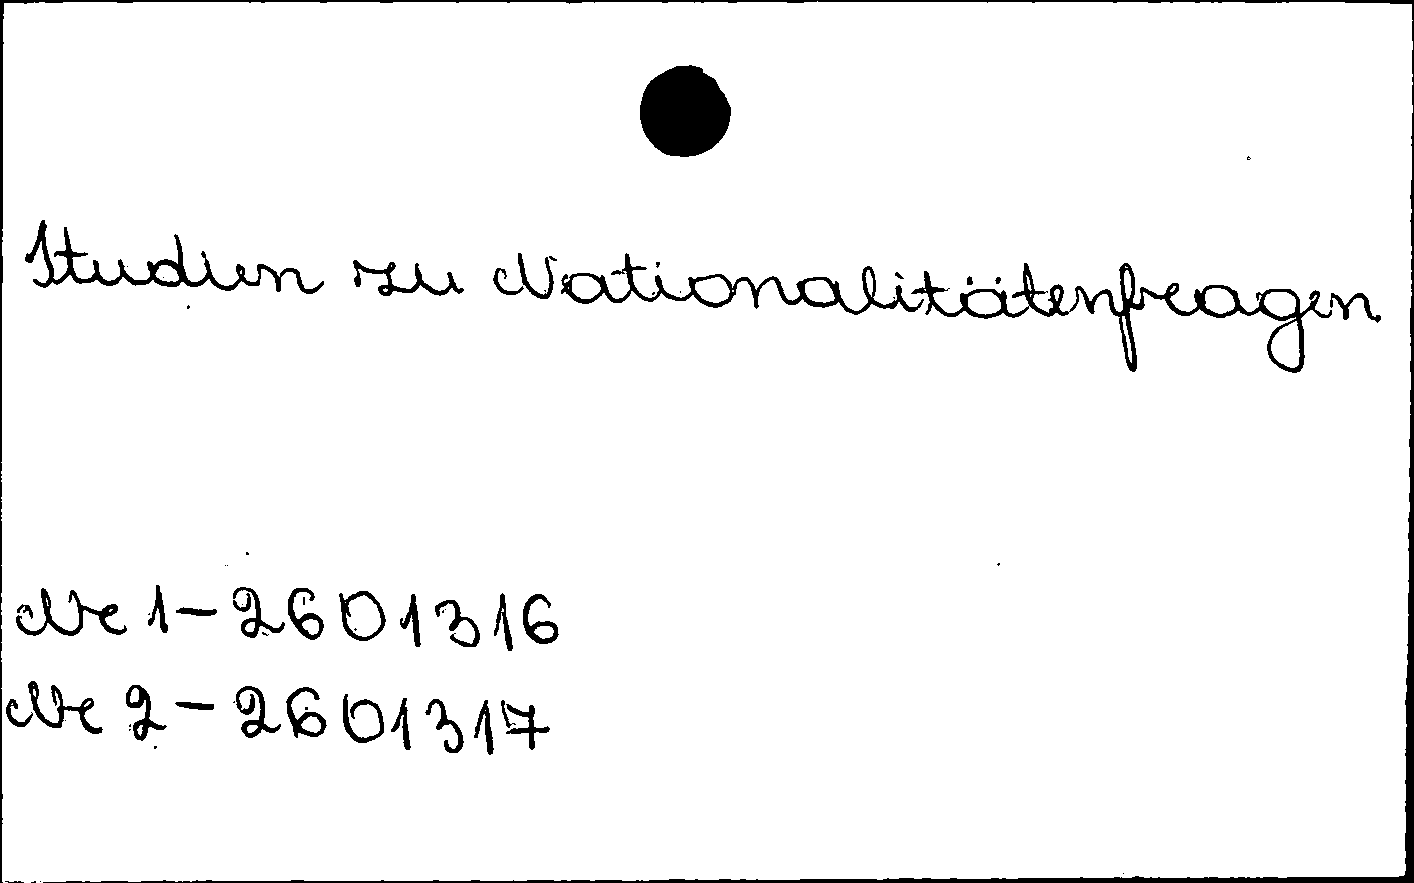 Studien zu Nationalitätenfragen
Nr 1 - 2601316
Nr 2 - 2601317